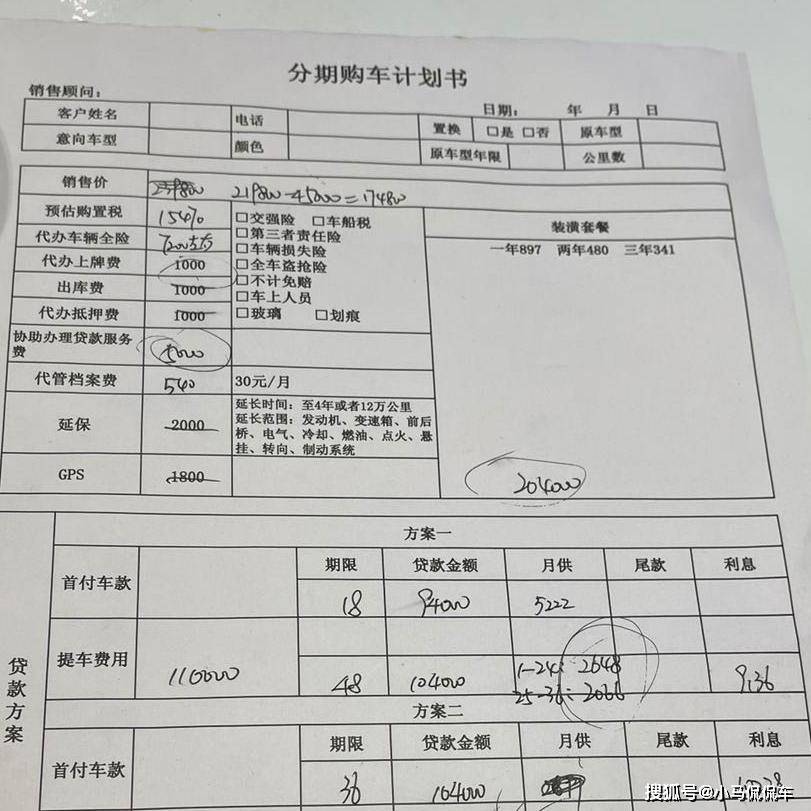 分期购车计划书
销售顾问：
日期： 年 月 日
客户姓名 电话 置换 □是 □否 原车型
意向车型 颜色 原车型年限 公里数
销售价 219800-45000=174800
预估购置税 15470 □交强险 □车船税 装潢套餐
代办车辆全险 □第三者责任险 一年897 两年480 三年341
□车辆损失险
代办上牌费 1000 □全车盗抢险
□不计免赔
出库费 1000 □车上人员
代办抵押费 1000 □玻璃 □划痕
协助办理贷款服务费 5000
代管档案费 540 30元/月
延保 2000 延长时间：至4年或者12万公里
延长范围：发动机、变速箱、前后
桥、电气、冷却、燃油、点火、悬
挂、转向、制动系统
GPS 1800 204000
贷款方案
方案一
首付车款 期限 贷款金额 月供 尾款 利息
18 94000 5222
提车费用 110000 48 104000 1-24: 2648 9136
25-36: 2066
方案二
首付车款 期限 贷款金额 月供 尾款 利息
36 104000
搜狐号@小马侃侃车